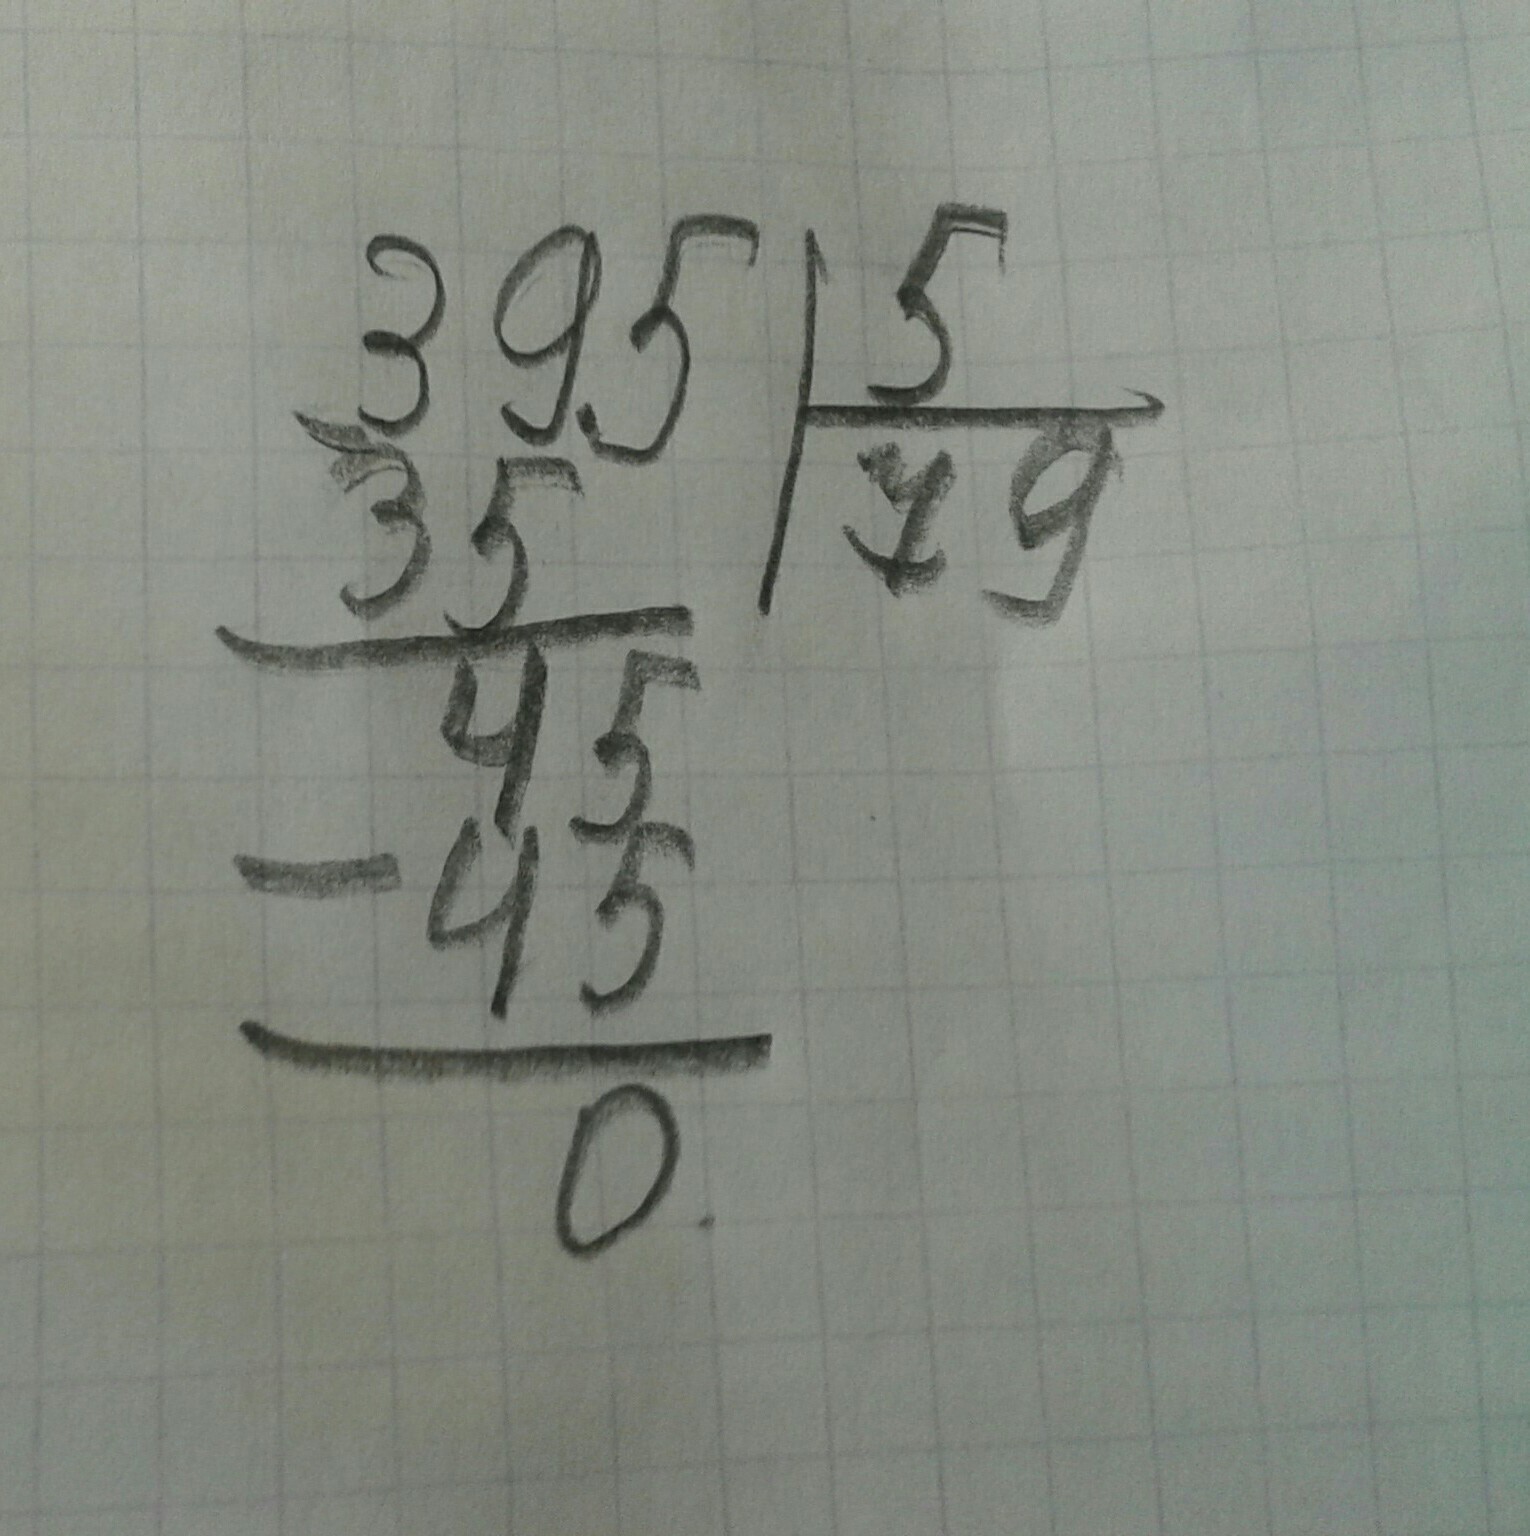 395 5
79
35
45
- 45
0.